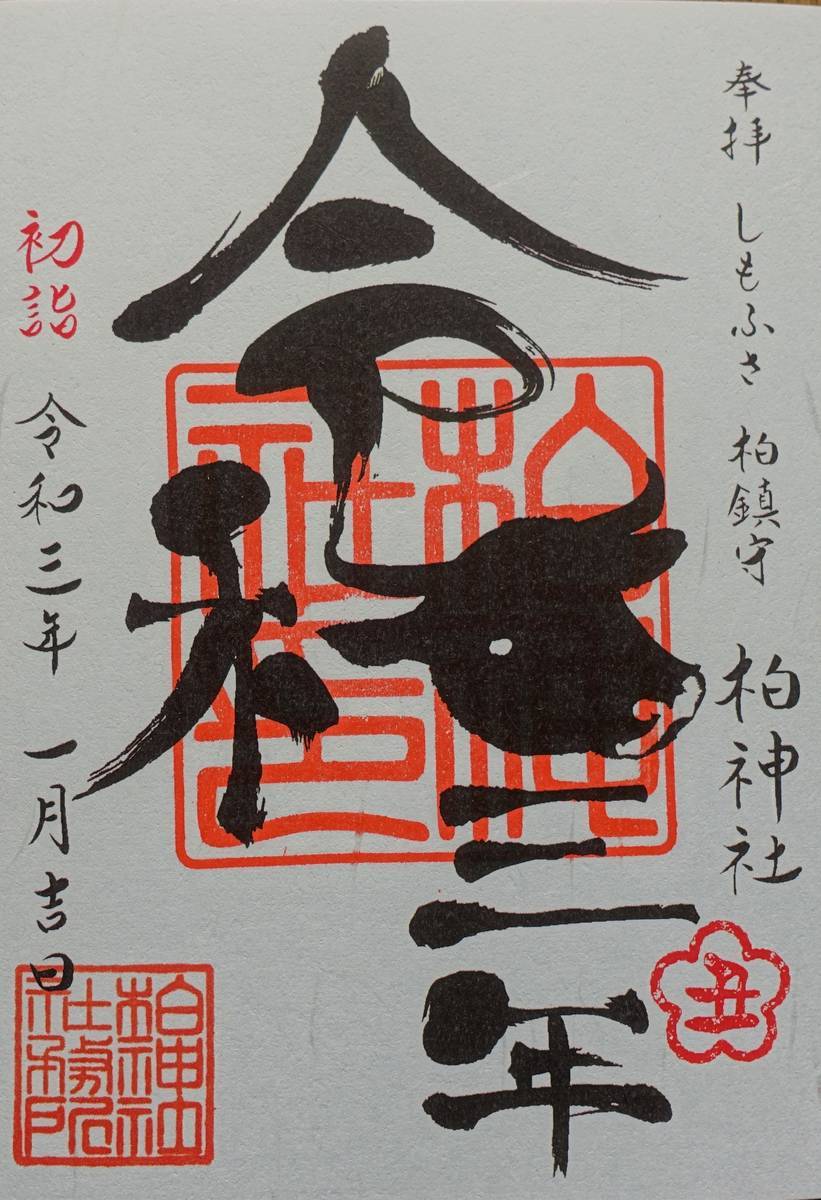 奉拝 しもふさ 柏鎮守
柏神社
丑
令和三年
柏神
社印
初詣 令和三年 一月吉日
柏神社
社務所